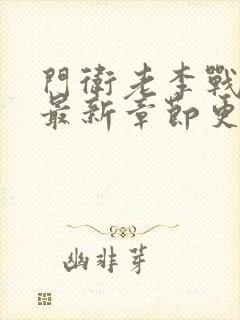 門衛老李戰
最新章節更
幽非芽